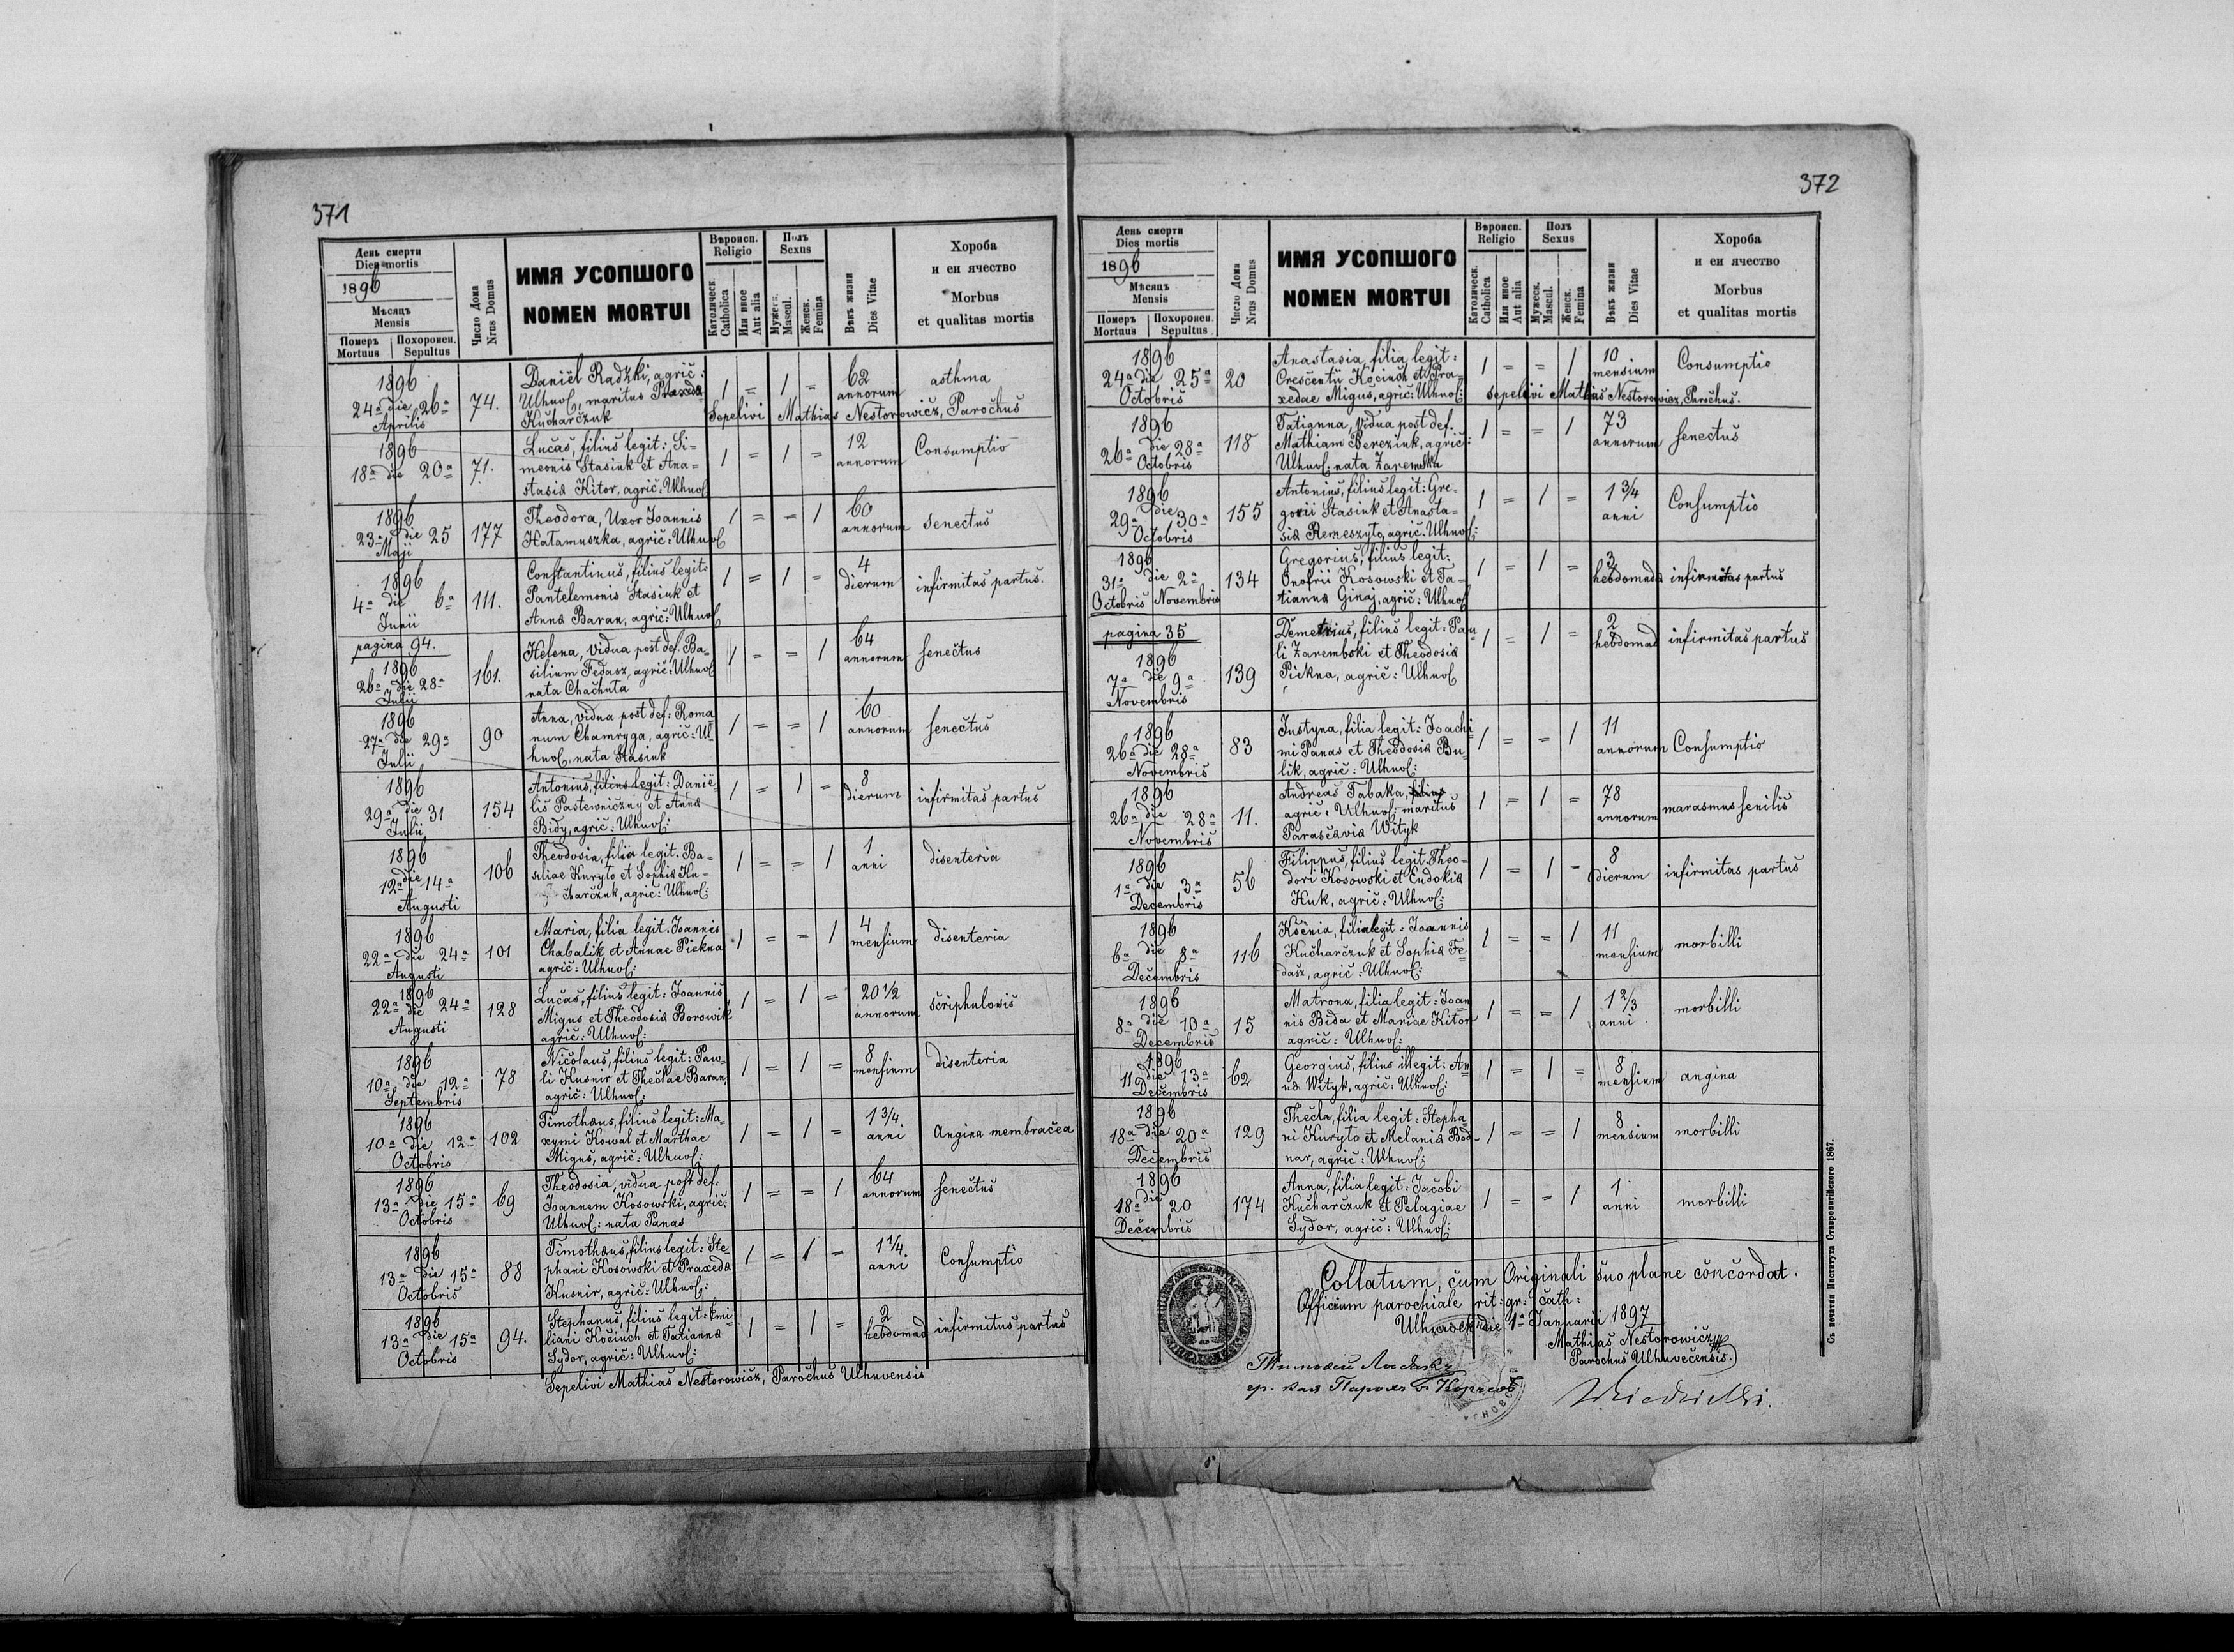 371
День смерти
Dies mortis
1896
Мѣсяцъ
Mensis
Померъ Похоронен.
Mortuus Sepultus
Число Дома
Nrus Domus
ИМЯ УСОПШОГО
NOMEN MORTUI
Вѣроисп.
Religio
Католическ.
Catholica
Или иное
Aut alia
Полъ
Sexus
Мужеск.
Mascul.
Женск.
Femina
Вѣкъ жизни
Dies Vitae
Хороба
и еи ячество
Morbus
et qualitas mortis
1896
24a die 26a
Aprilis
74.
Daniel Radzki, agric:
Ulhuof, maritus Praxeda
Kucharczuk
1 = 1 =
62
annorum
asthma
Sepelivi Mathias Nestorowicz, Parochus
1896
18a die 20a
71.
Lucas, filius legit: Si-
meonis Stasiuk et Ana-
stasia Kitor, agric: Ulhuof
1 = 1 =
12
annorum
Consumptio
1896
23a die 25
Maji
177
Theodora, Uxor Joannis
Hałamuszka, agric: Ulhuof
1 = = 1
60
annorum
senectus
1896
4a die 6a
Junii
111.
Constantinus, filius legit:
Pantelemonis Stasiuk et
Anna Baran, agric: Ulhuof
1 = 1 =
4
dierum
infirmitas partus.
pagina 94.
1896
26a die 28a
Julii
161.
Helena, vidua post def. Ba-
silium Fedasz, agric: Ulhuof
nata Chachuta
1 = = 1
64
annorum
senectus
1896
27a die 29a
Julii
90
Anna, vidua post def: Roma
num Chamryga, agric: Ul-
huof, nata Stasiuk
1 = = 1
60
annorum
senectus
1896
29a die 31
Julii
154
Antonius, filius legit: Danie-
lis Pastewniczny et Anna
Bidy, agric: Ulhuof:
1 = 1 =
8
dierum
infirmitas partus
1896
12a die 14a
Augusti
106
Theodosia, filia legit: Ba-
siliae Kuryło et Sophia Ku-
charczuk, agric: Ulhuof:
1 = = 1
1
anni
disenteria
1896
22a die 24a
Augusti
101
Maria, filia legit. Joannis
Chabalik et Annae Piekna
agric: Ulhuof:
1 = = 1
4
mensium
disenteria
1896
22a die 24a
Augusti
128
Lucas, filius legit: Joannis
Migus et Theodosia Borowik
agric: Ulhuof:
1 = 1 =
20 1/2
annorum
scriphulosis
1896
10a die 12a
Septembris
78
Nicolaus, filius legit: Paw-
li Kusnir et Theclae Baran,
agric: Ulhuof:
1 = 1 =
8
mensium
disenteria
1896
10a die 12a
Octobris
102
Timothaus, filius legit: Ma-
xymi Kowal et Marthae
Migus, agric: Ulhuof:
1 = 1 =
1 3/4
anni
Angina membracea
1896
13a die 15a
Octobris
69
Theodosia, vidua post def:
Joannem Kosowski, agric:
Ulhuof: nata Panas
1 = = 1
64
annorum
senectus
1896
13a die 15a
Octobris
88
Timothaus, filius legit: Ste-
phani Kosowski et Praxeda
Kusnir, agric: Ulhuof:
1 = 1 =
1 1/4.
anni
Consumptio
1896
13a die 15a
Octobris
94.
Stephanus, filius legit: Emi-
liani Kociuch et Tatianna
Sydor, agric: Ulhuof:
1 = 1 =
2
hebdomad
infirmitus partus
Sepelivi Mathias Nestorowicz, Parochus Ulhuvensis
372
День смерти
Dies mortis
1896
Мѣсяцъ
Mensis
Померъ Похоронен.
Mortuus Sepultus
Число Дома
Nrus Domus
ИМЯ УСОПШОГО
NOMEN MORTUI
Вѣроисп.
Religio
Католическ.
Catholica
Или иное
Aut alia
Полъ
Sexus
Мужеск.
Mascul.
Женск.
Femina
Вѣкъ жизни
Dies Vitae
Хороба
и еи ячество
Morbus
et qualitas mortis
1896
24a die 25a
Octobris
20
Anastasia, filia legit:
Crescentii Kociuch et Pra-
xedae Migus, agric: Ulhuof:
1 = = 1
10
mensium
Consumptio
sepelivi Mathias Nestorowicz, Parochus.
1896
26a die 28a
Octobris
118
Tatianna, vidua post def.
Mathiam Bereziuk, agric:
Ulhuof: nata Zarembska
1 = = 1
73
annorum
senectus
1896
29a die 30a
Octobris
155
Antonius, filius legit: Gre-
gorii Stasiuk et Anasta-
sia Remeszyło, agric: Ulhuof:
1 = 1 =
1 3/4
anni
Consumptio
1896
31a die 2a
Octobris Novembris
134
Gregorius, filius legit:
Onofrii Kosowski et Ta-
tianna Ginaj, agric: Ulhuof
1 = 1 =
3
hebdomada
infirmitas partus
pagina 35
1896
7a die 9a
Novembris
139
Demetrius, filius legit: Pau
li Zarembski et Theodosia
Piekna, agric: Ulhuof
1 = 1 =
2
hebdomad
infirmitas partus
1896
26a die 28a
Novembris
83
Justyna, filia legit: Joachi
mi Panas et Theodosia Bu-
lik, agric: Ulhuof:
1 = = 1
11
annorum
Consumptio
1896
26a die 28a
Novembris
11.
Andreas Tabaka, filius
agric: Ulhuof: maritus
Parascavia Wityk
1 = 1 =
78
annorum
marasmus senilis
1896
1a die 3a
Decembris
56
Filippus, filius legit. Theo-
dori Kosowski et Eudokia
Huk, agric: Ulhuof:
1 = 1 -
8
dierum
infirmitas partus
1896
6a die 8a
Decembris
116
Ksenia, filia legit: Joannis
Kucharczuk et Sophia Fe-
dasz, agric: Ulhuof:
1 = = 1
11
mensium
morbilli
1896
8a die 10a
Decembris
15
Matrona, filia legit: Joan
nis Bida et Mariae Kitor
agric: Ulhuof:
1 = = 1
1 2/3
anni
morbilli
1896
11 die 13a
Decembris
62
Georgius, filius illegit: An
na Wityk, agric: Ulhuof:
1 = 1 =
8
mensium
angina
1896
18a die 20a
Decembris
129
Thecla, filia legit: Stepha
ni Kuryło et Melania Bod-
nar, agric: Ulhuof:
1 = = 1
8
mensium
morbilli
1896
18a die 20
Decembris
174
Anna, filia legit: Jacobi
Kucharczuk et Pelagiae
Sydor, agric: Ulhuof:
1 = = 1
1
anni
morbilli
Collatum, cum Originali suo plane concordat.
Officium parochiale rit: gr: cath:
Ulhuwek die 1a Januarii 1897
Mathias Nestorowicz
Parochus Ulhuvecensis.
Съ печатни Института Ставропигійского 1867.